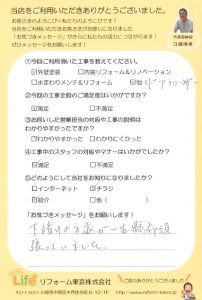 当店をご利用いただきありがとうございました。
お客さまのよろこび=私たちのよろこびです!
当店をご利用いただきお世話になりました
「お気づきメッセージ」が私たちの活力につながります!
ぜひメッセージをお願いします!
①今回ご利用いただいた工事を教えてください。
□外壁塗装 □内装リフォーム&リノベーション
□水まわりメンテ&リフォーム
②今回の工事全般のご満足度はいかがですか?
☑満足 □不満足
③お伺いした営業担当の対応や工事の説明は
わかりやすかったですか?
☑わかりやすかった □わかりにくかった
④工事中のスタッフの対応やマナーはいかがでしたか?
☑満足 □不満足
⑤どのようにして当社をお知りになりましたか?
□インターネット □チラシ
☑紹介 □他( )
「お気づきメッセージ」をお願いします!
下請けの方達が一生懸命頑
張っていました。
Life
リフォーム東京株式会社
ご協力ありがとうございました